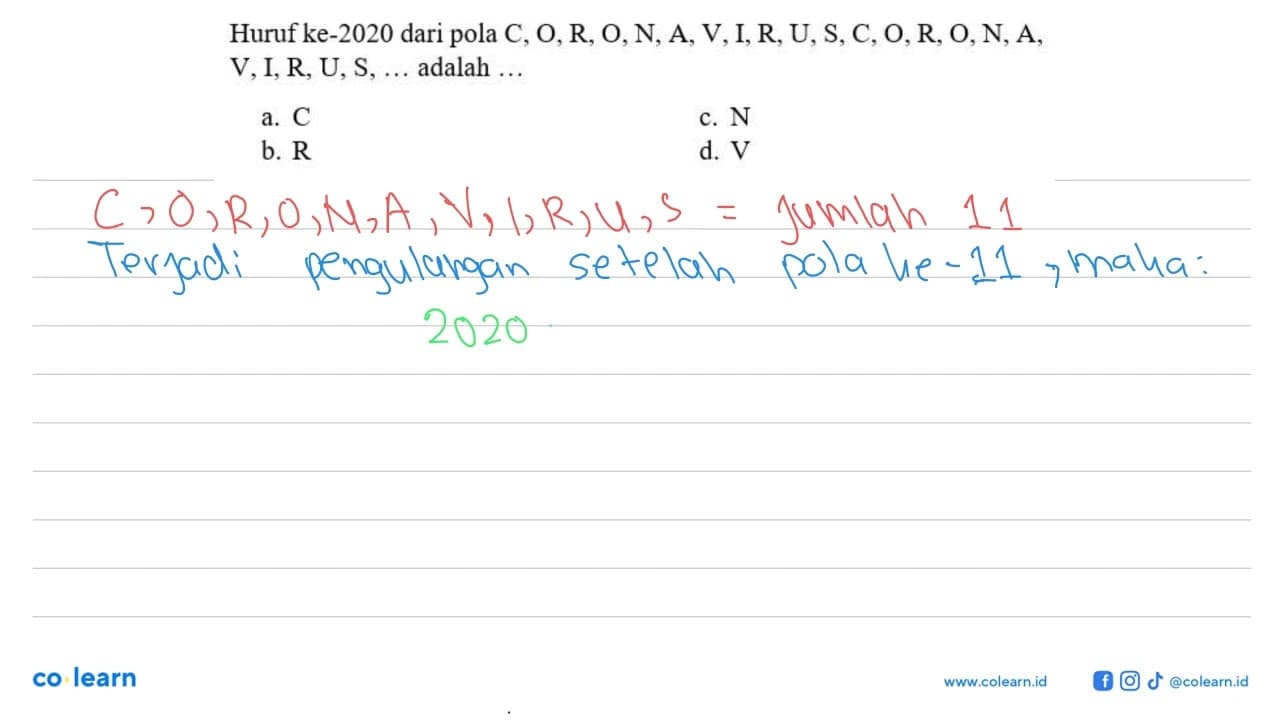 Huruf ke-2020 dari pola C, O, R, O, N, A, V, I, R, U, S, C, O, R, O, N, A,
V, I, R, U, S, … adalah …
a. C
c. N
b. R
d. V
C, O, R, O, N, A, V, I, R, U, S = Jumlah 11
Terjadi pengulangan setelah pola ke-11, maka:
2020
co learn
www.colearn.id
@colearn.id